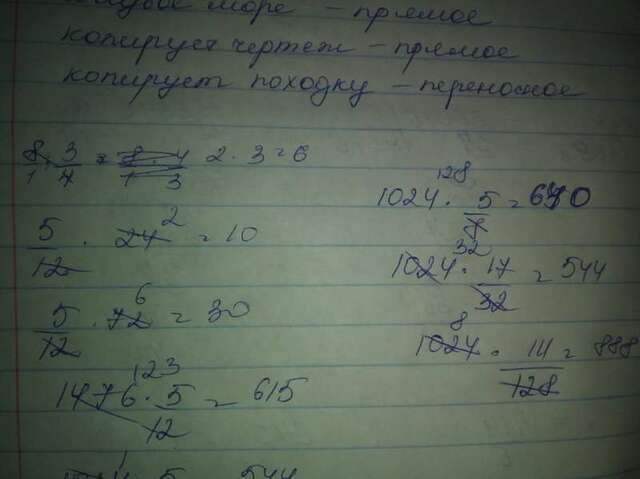 море – прямое
копирует чертеж – прямое
копирует походку – переносное
8/1 · 3/4 = 8 · 4 / 1 · 3 2 · 3 = 6
5/12 · 24 2 = 10
5/12 · 72 6 = 30
1476 123 · 5/12 = 615
1024 128 · 5/8 = 640
1024 32 · 17/32 = 544
1024 8 · 111/128 = 888
5 544